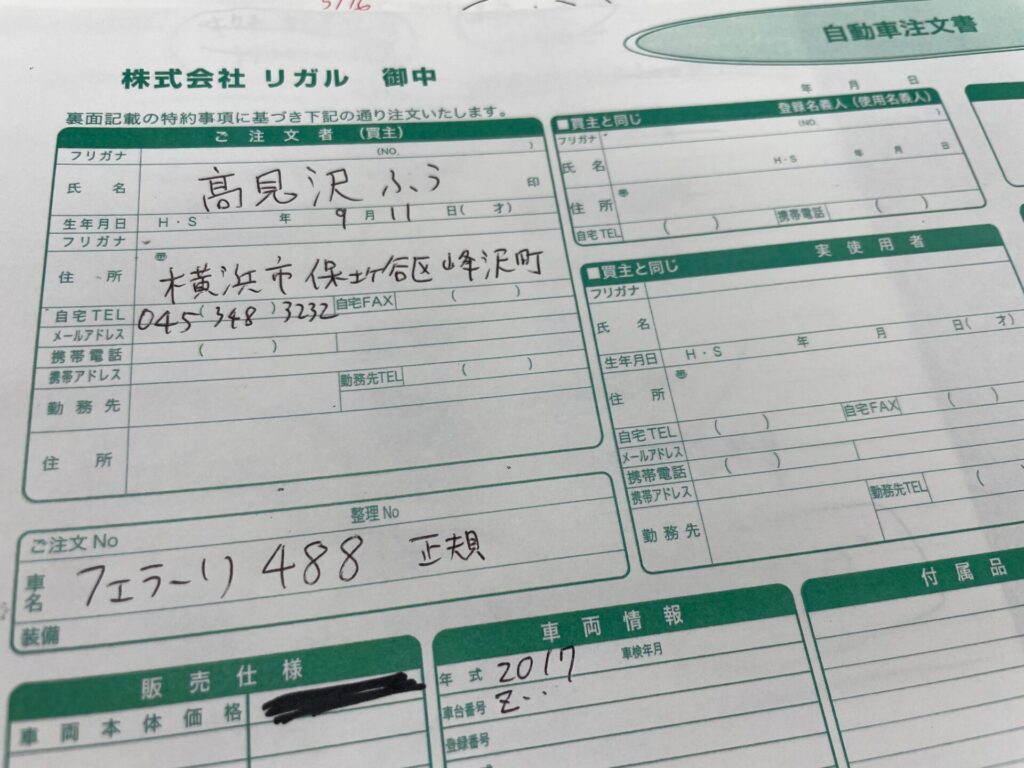 5/16
自動車注文書
株式会社 リガル 御中
年 月 日
裏面記載の特約事項に基づき下記の通り注文いたします。
ご注文者(買主)
フリガナ (NO. )
氏名 高見沢ふう 印
生年月日 H・S 年 9月11日( 才)
フリガナ
住所 〒 横浜市保土ヶ谷区峰沢町
自宅TEL 045(348)3232 自宅FAX ( )
メールアドレス
携帯電話 ( )
携帯アドレス 勤務先TEL ( )
勤務先
住所
■買主と同じ 登録名義人(使用名義人)
フリガナ (NO. )
氏名 H・S 年 月 日
住所 〒
自宅TEL ( ) 携帯電話 ( )
■買主と同じ 実使用者
フリガナ
氏名
生年月日 H・S 年 月 日( 才)
住所 〒
自宅TEL ( ) 自宅FAX ( )
メールアドレス
携帯電話 ( )
携帯アドレス 勤務先TEL (
勤務先
ご注文No 整理No
車名 フェラーリ 488 正規
装備
販売仕様
車両本体価格
車両情報
年式 2017 車検年月
車台番号 Z・・・
登録番号
付属品